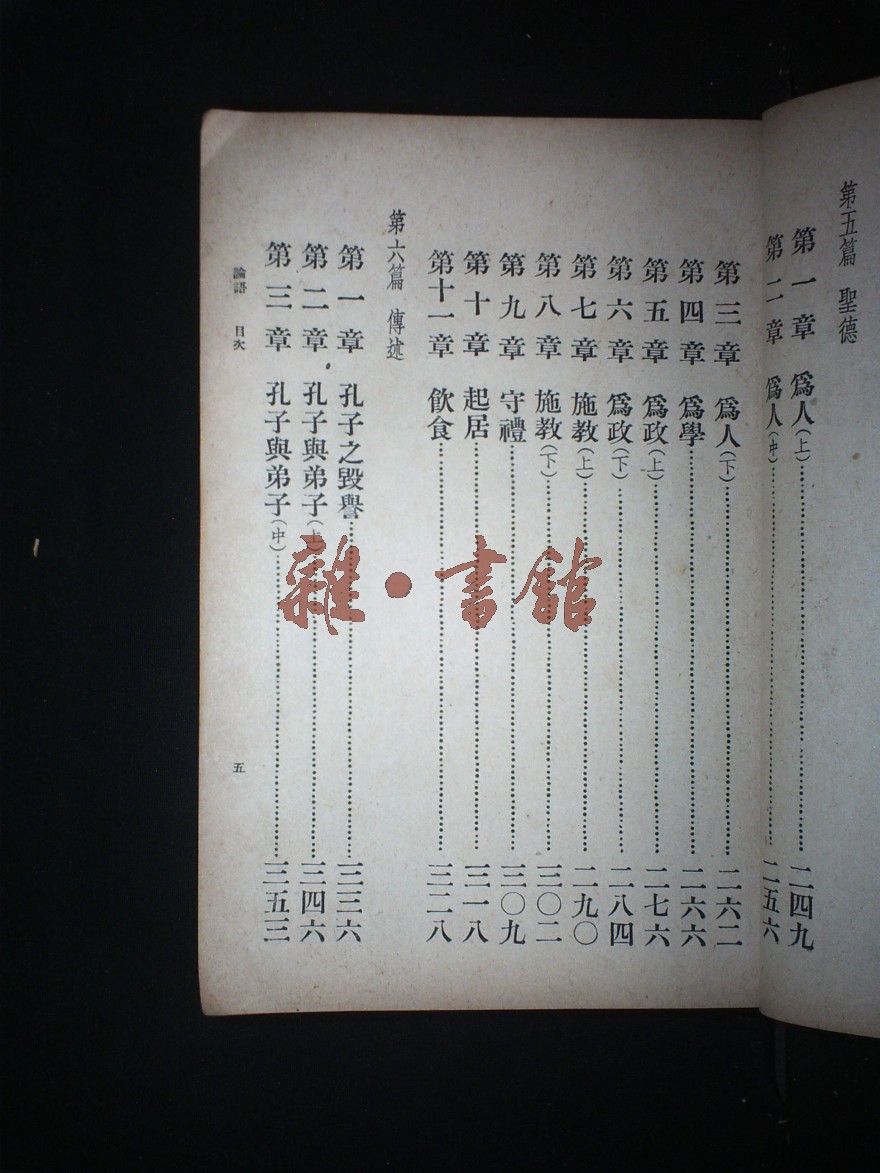 第五篇 聖德
第一章 爲人(上)……二四九
第二章 爲人(中)……二五六
第三章 爲人(下)……二六二
第四章 爲學……二六六
第五章 爲政(上)……二七六
第六章 爲政(下)……二八四
第七章 施教(上)……二九〇
第八章 施教(下)……三〇二
第九章 守禮……三〇九
第十章 起居……三一八
第十一章 飲食……三二八
第六篇 傳述
第一章 孔子之毀譽……三三六
第二章 孔子與弟子(上)……三四六
第三章 孔子與弟子(中)……三五三
論語 目次 五
雜·書館